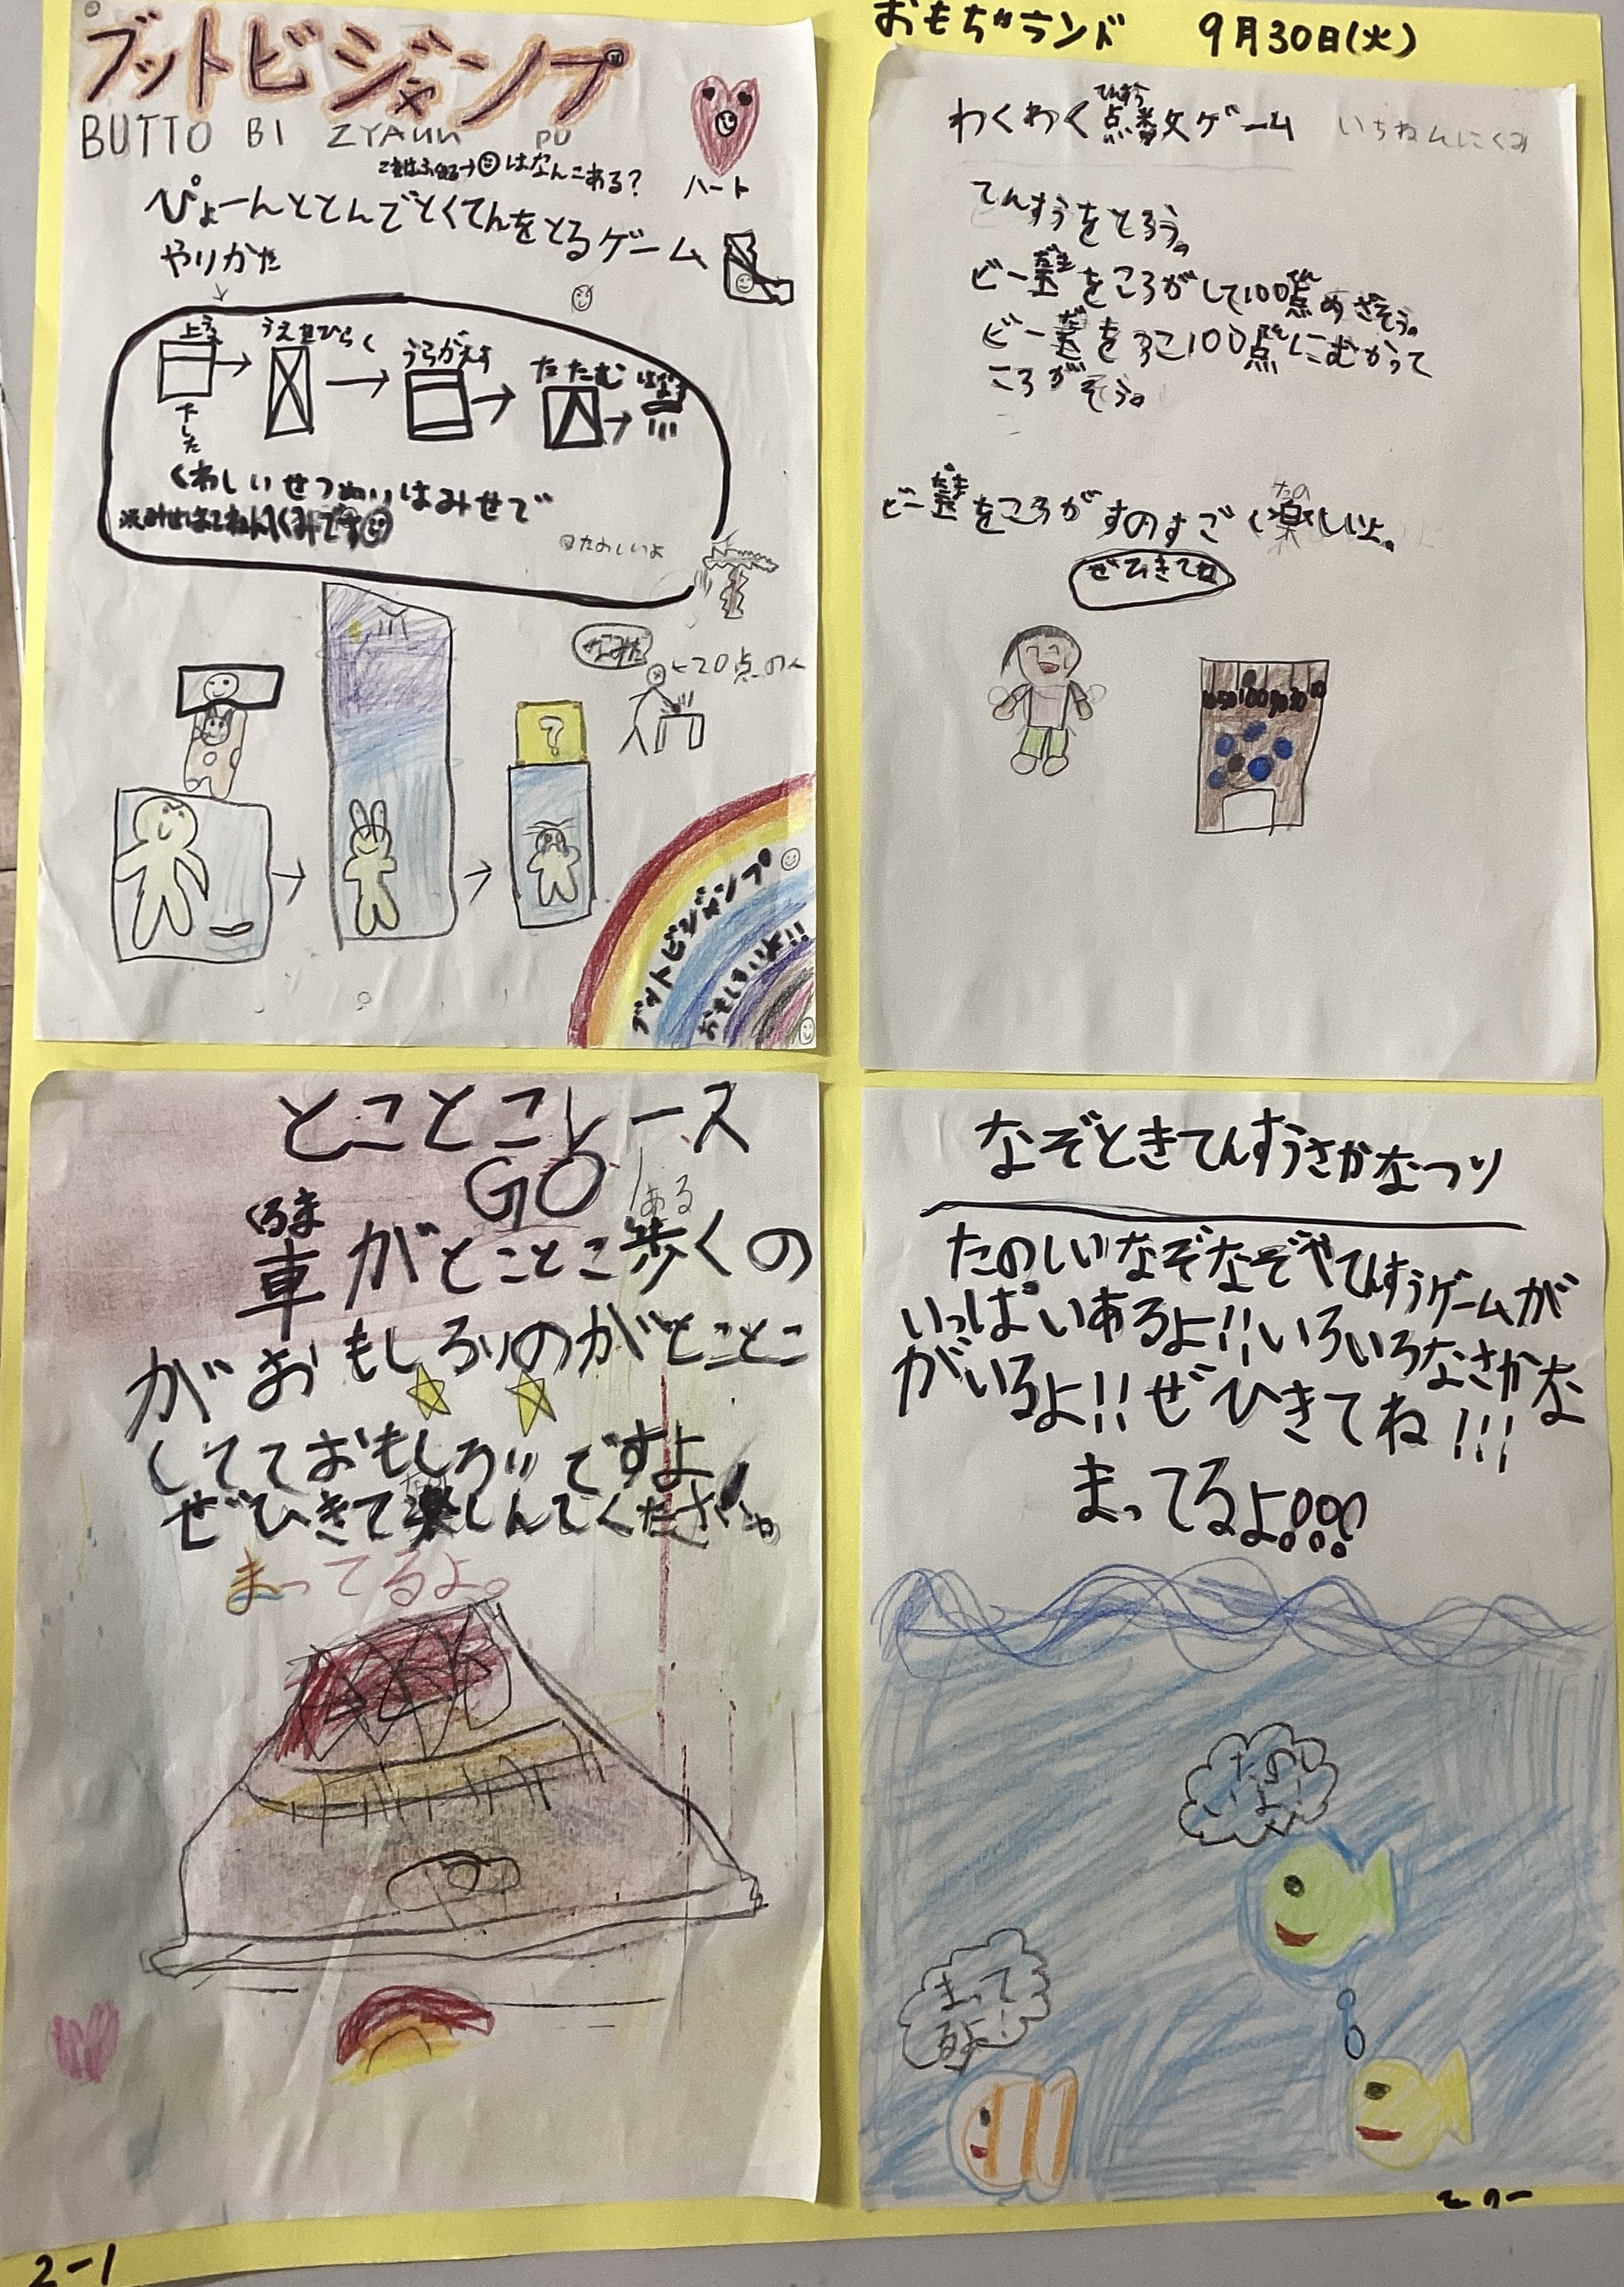 おもちゃランド 9月30日(火)
ブットビジャンプ
BUTTO BI ZYANN PU
はなんこある?
ハート
ぴょーんととんでとくてんをとるゲーム
やりかた
上うえ
下した
うえをひらく
うらがえす
たたむ
はなす
くわしいせつめいはみせで
たのしいよ
20点の人
?
ブットビジャンプ
おもしろいよ!!
わくわく点数ゲーム いちねんにくみ
てんすう
てんすうをとろう。
ビー玉をころがして100点めざそう。
ビー玉を3こ100点にむかって
ころがそう。
ビー玉をころがすのすごく楽しいよ。
たの
ぜひきてね
とことこレース
GO
くるま
ある
車がとことこ歩くの
がおもしろいのがとことこ
してておもしろいですよ!
ぜひきて楽しんでください。
まってるよ。
なぞときてんすうさかなつり
たのしいなぞなぞやてんすうゲームが
いっぱいあるよ!!いろいろなさかな
がいるよ!!ぜひきてね!!!
まってるよ!!!
たのし
いよ!
まって
るよ!
2-1
2の1